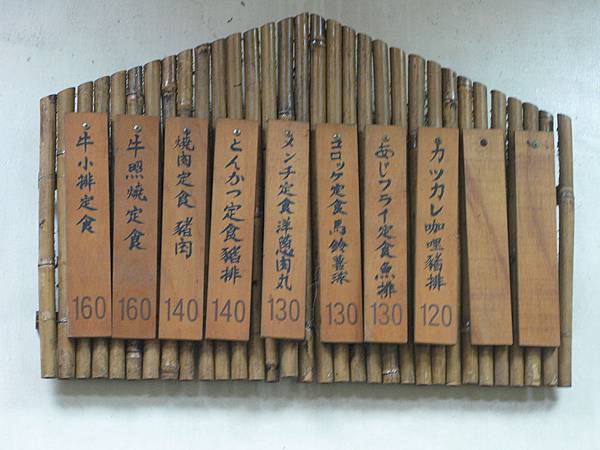 牛小排定食
160
牛照燒定食
160
燒肉定食 豬肉
140
とんかつ定食 豬排
140
メンチ定食 洋蔥肉丸
130
コロッケ定食 馬鈴薯球
130
あじフライ定食 魚排
130
カツカレ 咖哩豬排
120